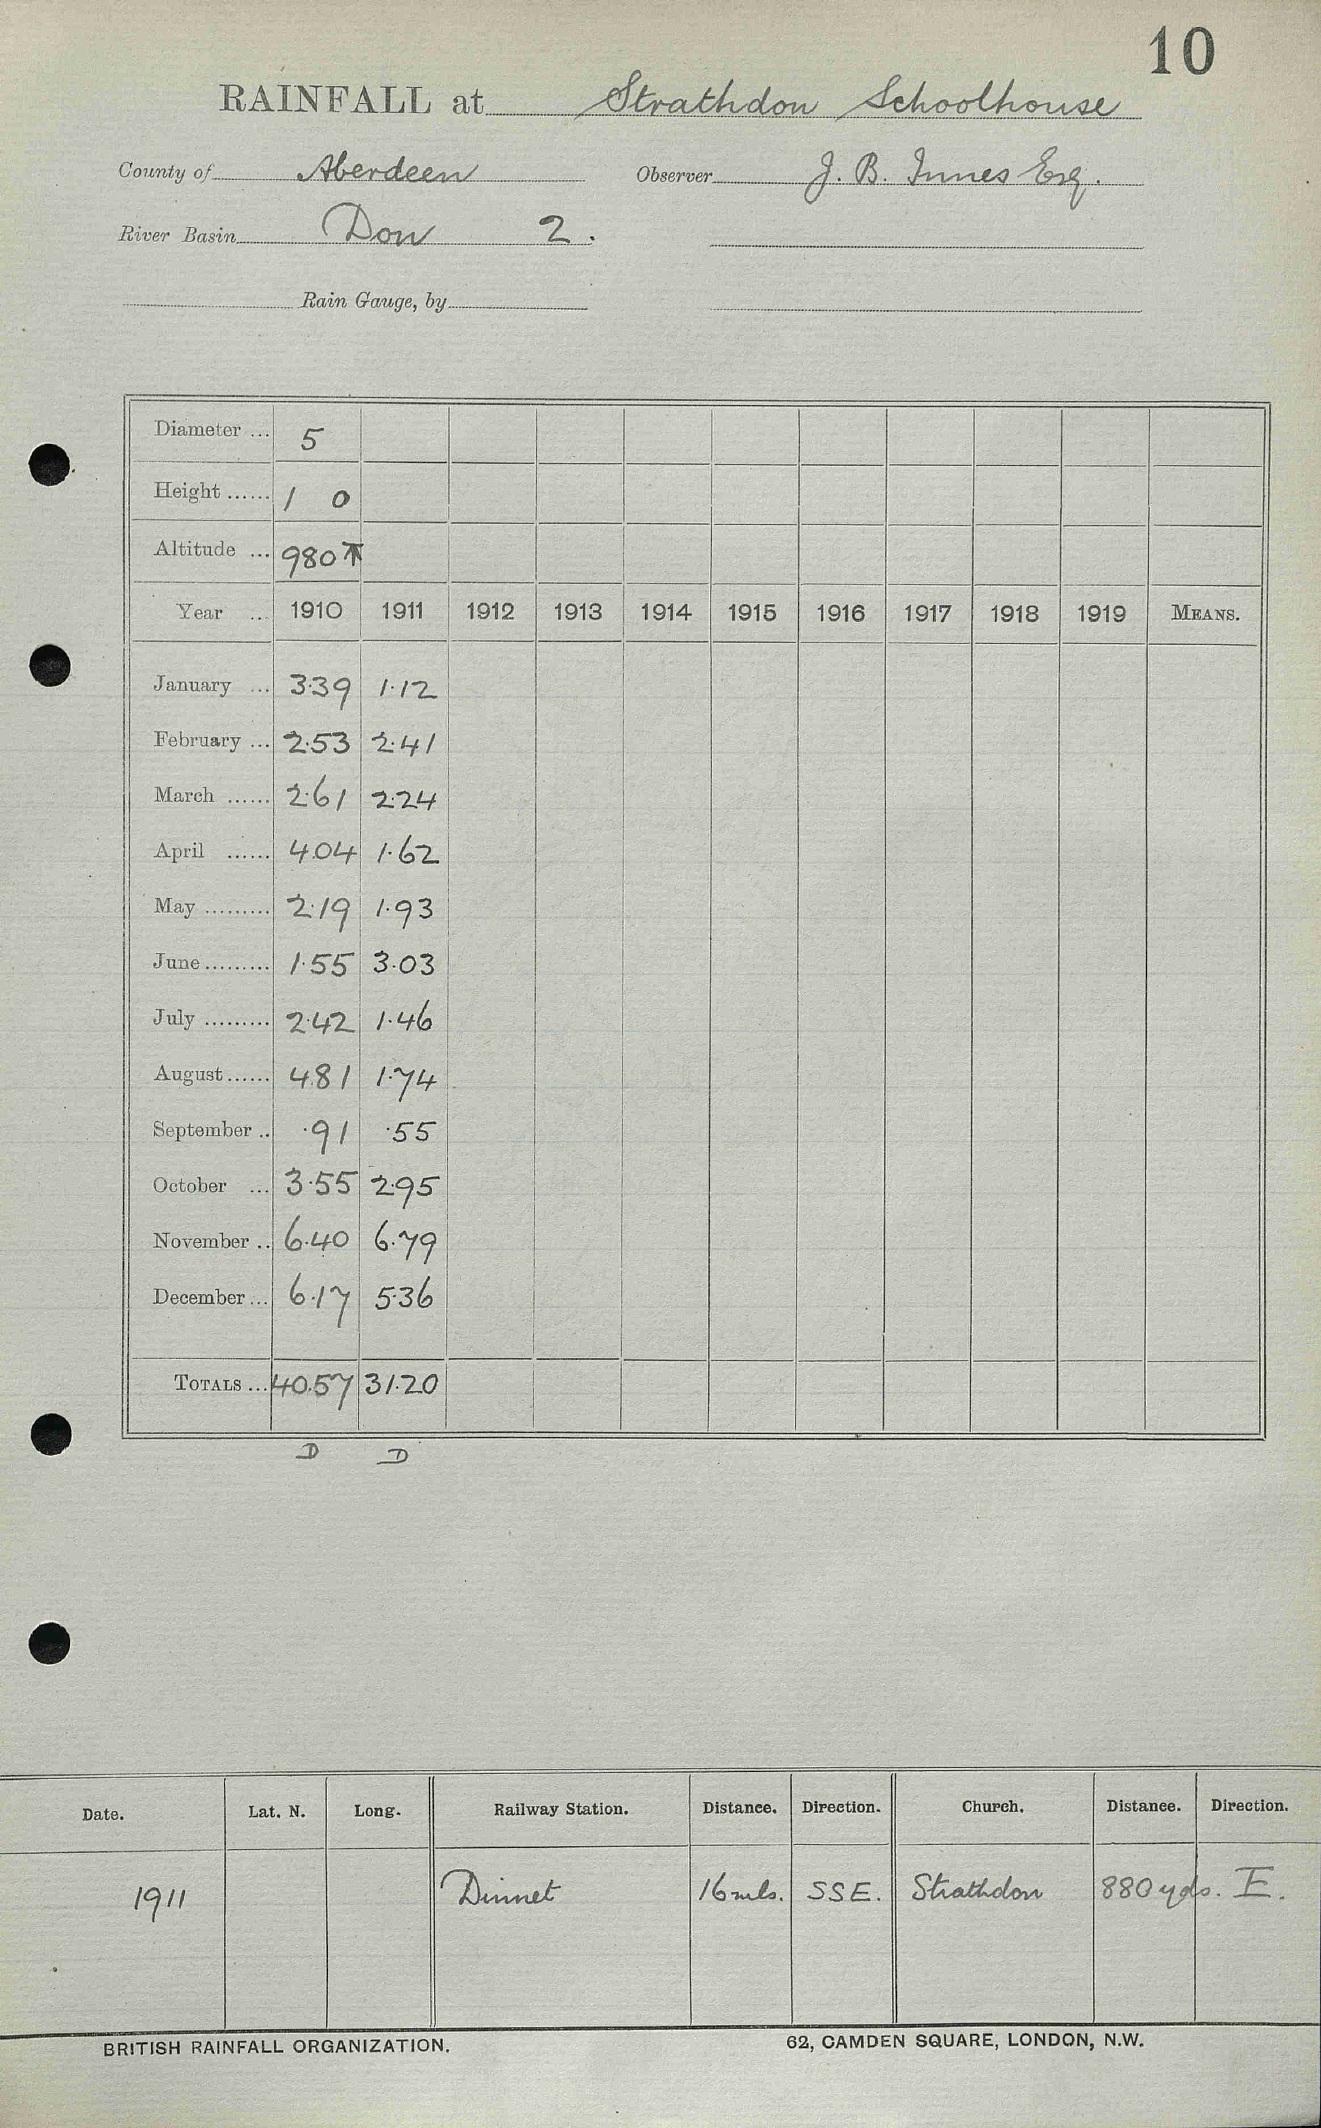 10
RAINFALL at Strathdon Schoolhouse
County of Aberdeen Observer J. B. Innes Esq.
River Basin Don 2.
Rain Gauge, by
Diameter ... 5
Height ...... 1 0
Altitude ... 980 T
Year ... 1910 1911 1912 1913 1914 1915 1916 1917 1918 1919 MEANS.
January ... 3.39 1.12
February ... 2.53 2.41
March ...... 2.61 2.24
April ...... 4.04 1.62
May ......... 2.19 1.93
June ......... 1.55 3.03
July ......... 2.42 1.46
August ...... 4.81 1.74
September .. .91 .55
October ... 3.55 2.95
November .. 6.40 6.79
December ... 6.17 5.36
TOTALS ... 40.57 31.20
D D
Date. Lat. N. Long. Railway Station. Distance. Direction. Church. Distance. Direction.
1911 Dinnet 16 mls. SSE. Strathdon 880 yds. E.
BRITISH RAINFALL ORGANIZATION. 62, CAMDEN SQUARE, LONDON, N.W.